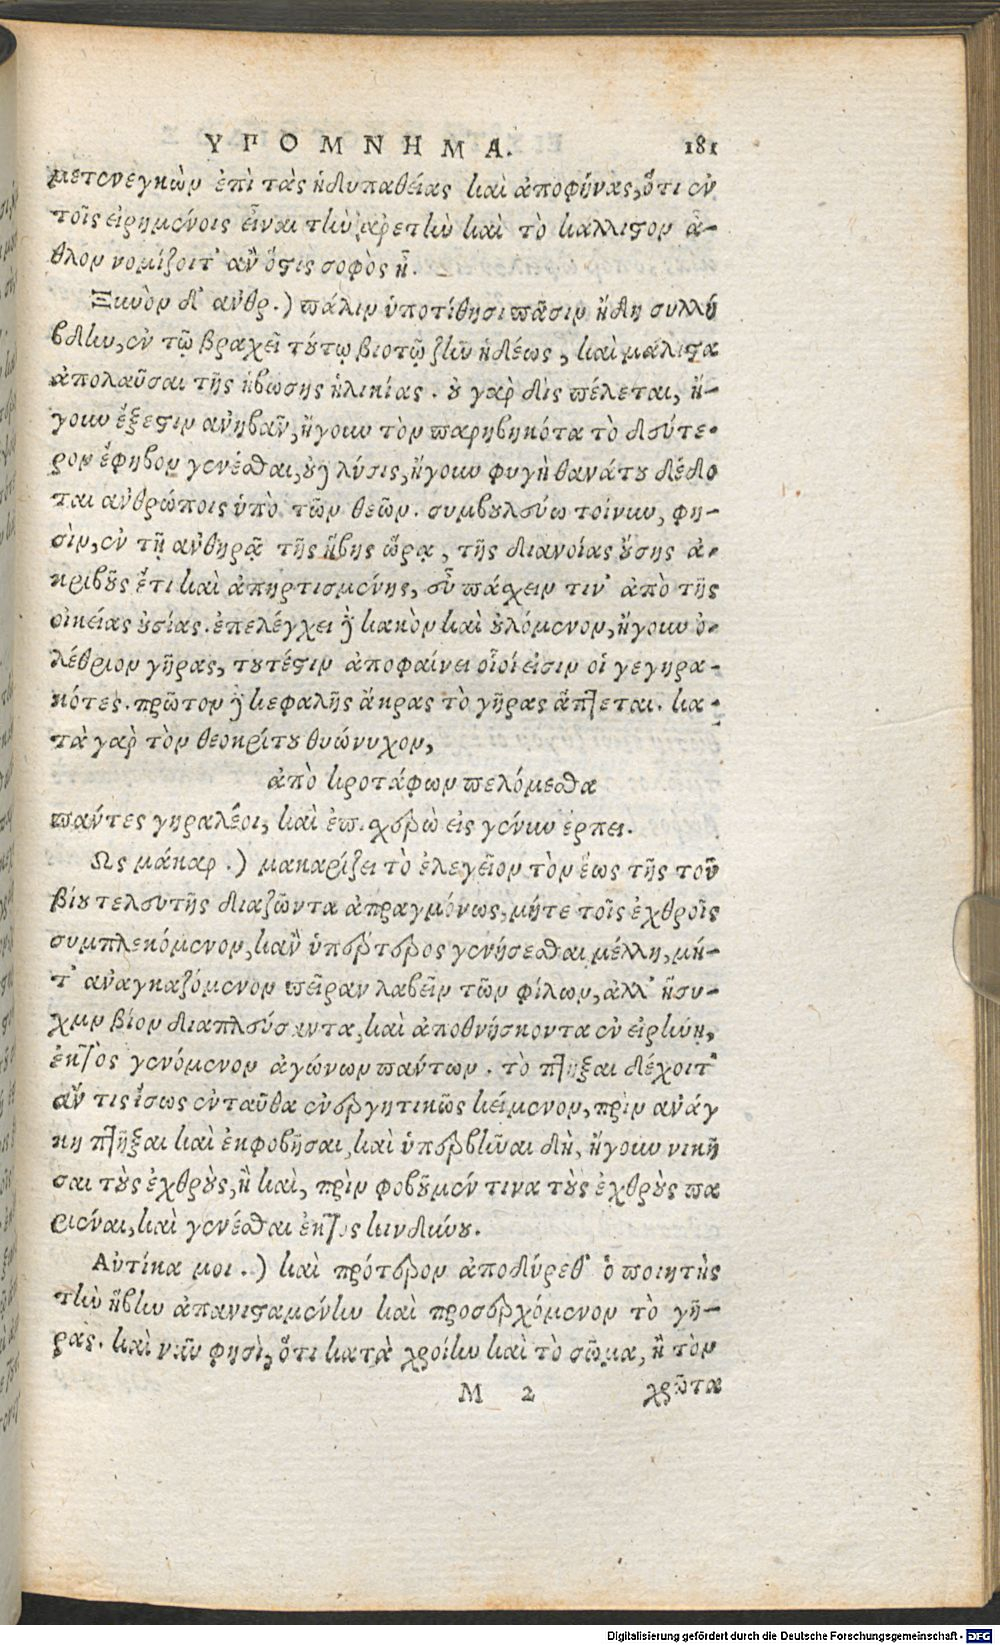 ΥΠΟΜΝΗΜΑ. 181
μετενεγκὼν ἐπὶ τὰς ἡδυπαθείας καὶ ἀποφήνας, ὅτι ἐν
τοῖς εἰρημένοις εἶναι τὴν ἀρετὴν καὶ τὸ κάλλιστον ἆ-
θλον νομίζοιτ' ἂν ὅστις σοφὸς ᾖ.
Ξυνὸν δ' ἀνθρ.) πάλιν ὑποτίθησι πᾶσιν ἤδη συλλή
βδην, ἐν τῷ βραχεῖ τούτῳ βιοτῷ ζῆν ἡδέως, καὶ μάλιστα
ἀπολαῦσαι τῆς ἡβώσης ἡλικίας. οὐ γὰρ δὶς πέλεται, ἤ-
γουν ἔξεστιν ἀνηβᾶν, ἤγουν τὸν παρηβηκότα τὸ δεύτε-
ρον ἔφηβον γενέσθαι, οὐδὲ λύσις, ἤγουν φυγὴ θανάτου δέδο
ται ἀνθρώποις ὑπὸ τῶν θεῶν. συμβουλεύω τοίνυν, φη-
σὶν, ἐν τῇ ἀνθηρᾷ τῆς ἥβης ὥρᾳ, τῆς διανοίας οὔσης ἀ-
κριβοῦς ἔτι καὶ ἀπηρτισμένης, εὖ πάσχειν τιν' ἀπὸ τῆς
οἰκείας οὐσίας. ἐπελέγχει δὲ κακὸν καὶ οὐλόμενον, ἤγουν ὀ-
λέθριον γῆρας, τουτέστιν ἀποφαίνει οἷοί εἰσιν οἱ γεγηρα-
κότες. πρῶτον δὲ κεφαλῆς ἄκρας τὸ γῆρας ἅπτεται. κα-
τὰ γὰρ τὸν θεοκρίτου θυώνυχον,
ἀπὸ κροτάφων πελόμεσθα
πάντες γηραλέοι, καὶ ἐπ. σχερὼ εἰς γένυν ἕρπει.
Ως μάκαρ.) μακαρίζει τὸ ἐλεγεῖον τὸν ἕως τῆς τοῦ
βίου τελευτῆς διαζῶντα ἀπραγμόνως, μήτε τοῖς ἐχθροῖς
συμπλεκόμενον, κἂν ὑπέρτερος γενήσεσθαι μέλλῃ, μή-
τ' ἀναγκαζόμενον πεῖραν λαβεῖν τῶν φίλων, ἀλλ' ἥσυ-
χον βίον διαπλεύσαντα, καὶ ἀποθνήσκοντα ἐν εἰρήνῃ,
ἐκτὸς γενόμενον ἀγώνων πάντων. τὸ πτῆξαι δέχοιτ'
ἄν τις ἴσως ἐνταῦθα ἐνεργητικῶς κείμενον, πρὶν ἀνάγ
κῃ πτῆξαι καὶ ἐκφοβῆσαι, καὶ ὑπερβῆναι δὴ, ἤγουν νικῆ
σαι τοὺς ἐχθροὺς, ἢ καὶ, πρὶν φοβούμενόν τινα τοὺς ἐχθροὺς πα
ριέναι, καὶ γενέσθαι ἐκτὸς κινδύνου.
Αὐτίκα μοι.) καὶ πρότερον ἀποδύρεθ' ὁ ποιητὴς
τὴν ἥβην ἀπανισταμένην καὶ προσερχόμενον τὸ γῆ-
ρας. καὶ νῦν φησὶ, ὅτι κατὰ χροίην καὶ τὸ σῶμα, ἢ τὸν
M 2 χρῶτα
Digitalisierung gefördert durch die Deutsche Forschungsgemeinschaft - DFG